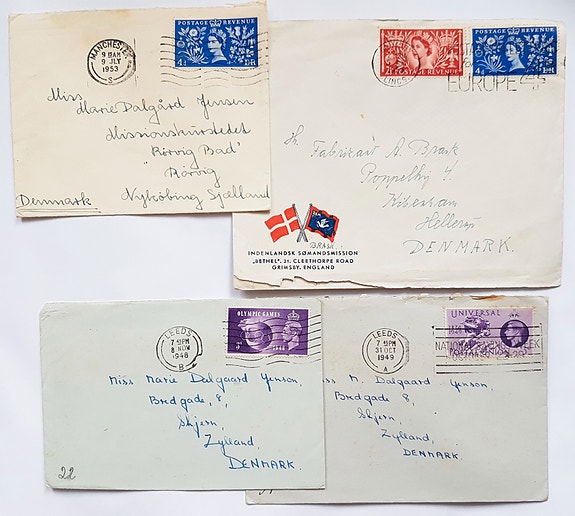 MANCHESTER
9 15AM
9 JLY
1953
S
POSTAGE REVENUE
4D
Miss
Marie Dalgård Jensen
Missionskurstedet
"Rörvig Bad"
Rörvig
Denmark Nyköbing Sjælland
POSTAGE REVENUE
POSTAGE REVENUE
4D
EUROPE
Hr. Fabrikant A. Brask
København
Hellerup
DENMARK.
BRASK.
INDENLANDSK SØMANDSMISSION
„BETHEL", 31, CLEETHORPE ROAD
GRIMSBY. ENGLAND
LEEDS
PM
8 NOV
1948
B
OLYMPIC GAMES
1948
Miss Marie Dalgaard Yenson,
Bredgade, 8,
Skjern,
Zylland,
DENMARK.
22
LEEDS
PM
31 OCT
1949
A
UNIVERSAL
NATIONAL
M. Dalgaard Yenson,
Bredgade 8,
Skjern,
Zylland,
DENMARK